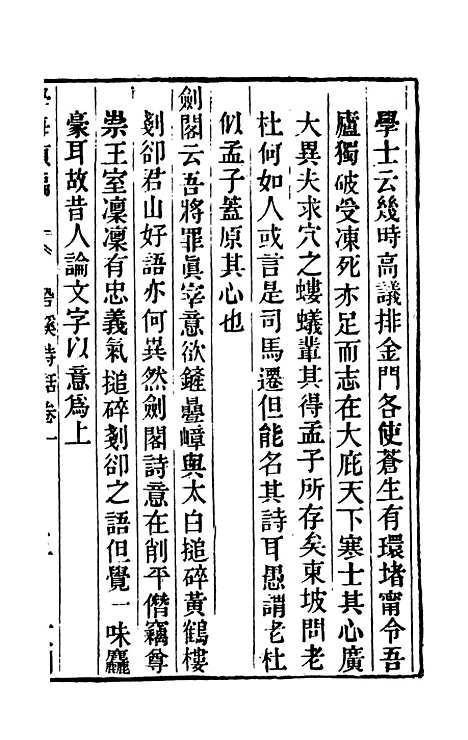 學士云幾時高議排金門各使蒼生有環堵甯令吾
廬獨破受凍死亦足而志在大庇天下寒士其心廣
大異夫求穴之螻蟻輩其得孟子所存矣東坡問老
杜何如人或言是司馬遷但能名其詩耳愚謂老杜
似孟子蓋原其心也
劍閣云吾將罪眞宰意欲鏟疊嶂與太白搥碎黃鶴樓
剗卻君山好語亦何異然劍閣詩意在削平僭竊尊
崇王室凜凜有忠義氣搥碎剗卻之語但覺一味麤
豪耳故昔人論文字以意爲上
溪詩話卷一